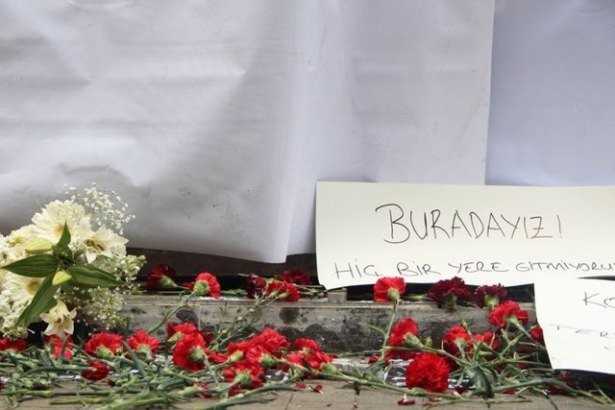 BURADAYIZ!
HİÇ BİR YERE GITMIYORU
K
TER